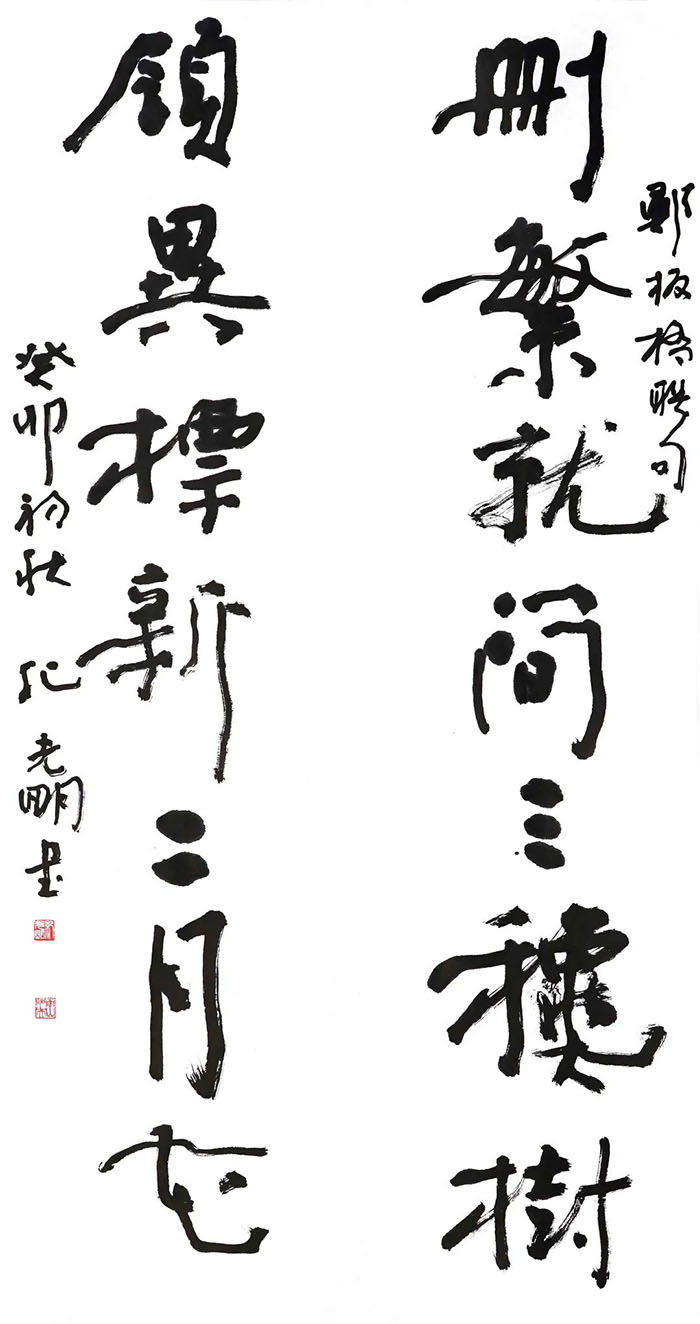 鄭板橋聯句
刪繁就简三穐樹
領異標新二月花
癸卯初秋 纪光明書